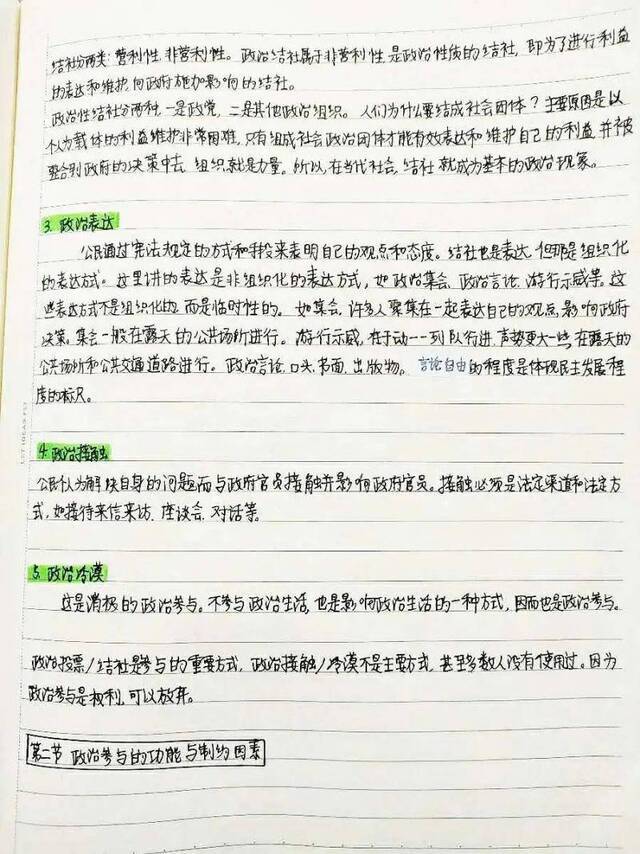 结社分两类：营利性、非营利性。政治结社属于非营利性，是政治性质的结社，即为了进行利益
的表达和维护，向政府施加影响的结社。
政治性结社分两种，一是政党，二是其他政治组织。人们为什么要结成社会团体？主要原因是以
个人为载体的利益维护非常困难，只有组成社会政治团体才能有效表达和维护自己的利益，并被
整合到政府的决策中去，组织就是力量。所以，在当代社会，结社就成为基本的政治现象。
3. 政治表达
公民通过宪法规定的方式和手段来表明自己的观点和态度。结社也是表达，但那是组织化
的表达方式。这里讲的表达是非组织化的表达方式，如政治集会、政治言论、游行示威等。这
些表达方式不是组织化的，而是临时性的。如集会，许多人聚集在一起表达自己的观点，影响政府
决策，集会一般在露天的公共场所进行。游行示威，在于动——列队行进，声势更大一些，在露天的
公共场所和公共交通道路进行。政治言论，口头、书面、出版物。言论自由的程度是体现民主发展程
度的标尺。
4. 政治接触
公民个人为解决自身的问题而与政府官员接触并影响政府官员。接触必须是法定渠道和法定方
式，如接待来信来访、座谈会、对话等。
5. 政治冷漠
这是消极的政治参与。不参与政治生活，也是影响政治生活的一种方式，因而也是政治参与。
政治投票/结社是参与的重要方式，政治接触/冷漠不是主要方式，甚至多数人没有使用过。因为
政治参与是权利，可以放弃。
第二节 政治参与的功能与制约因素
LET IDEAS FLY